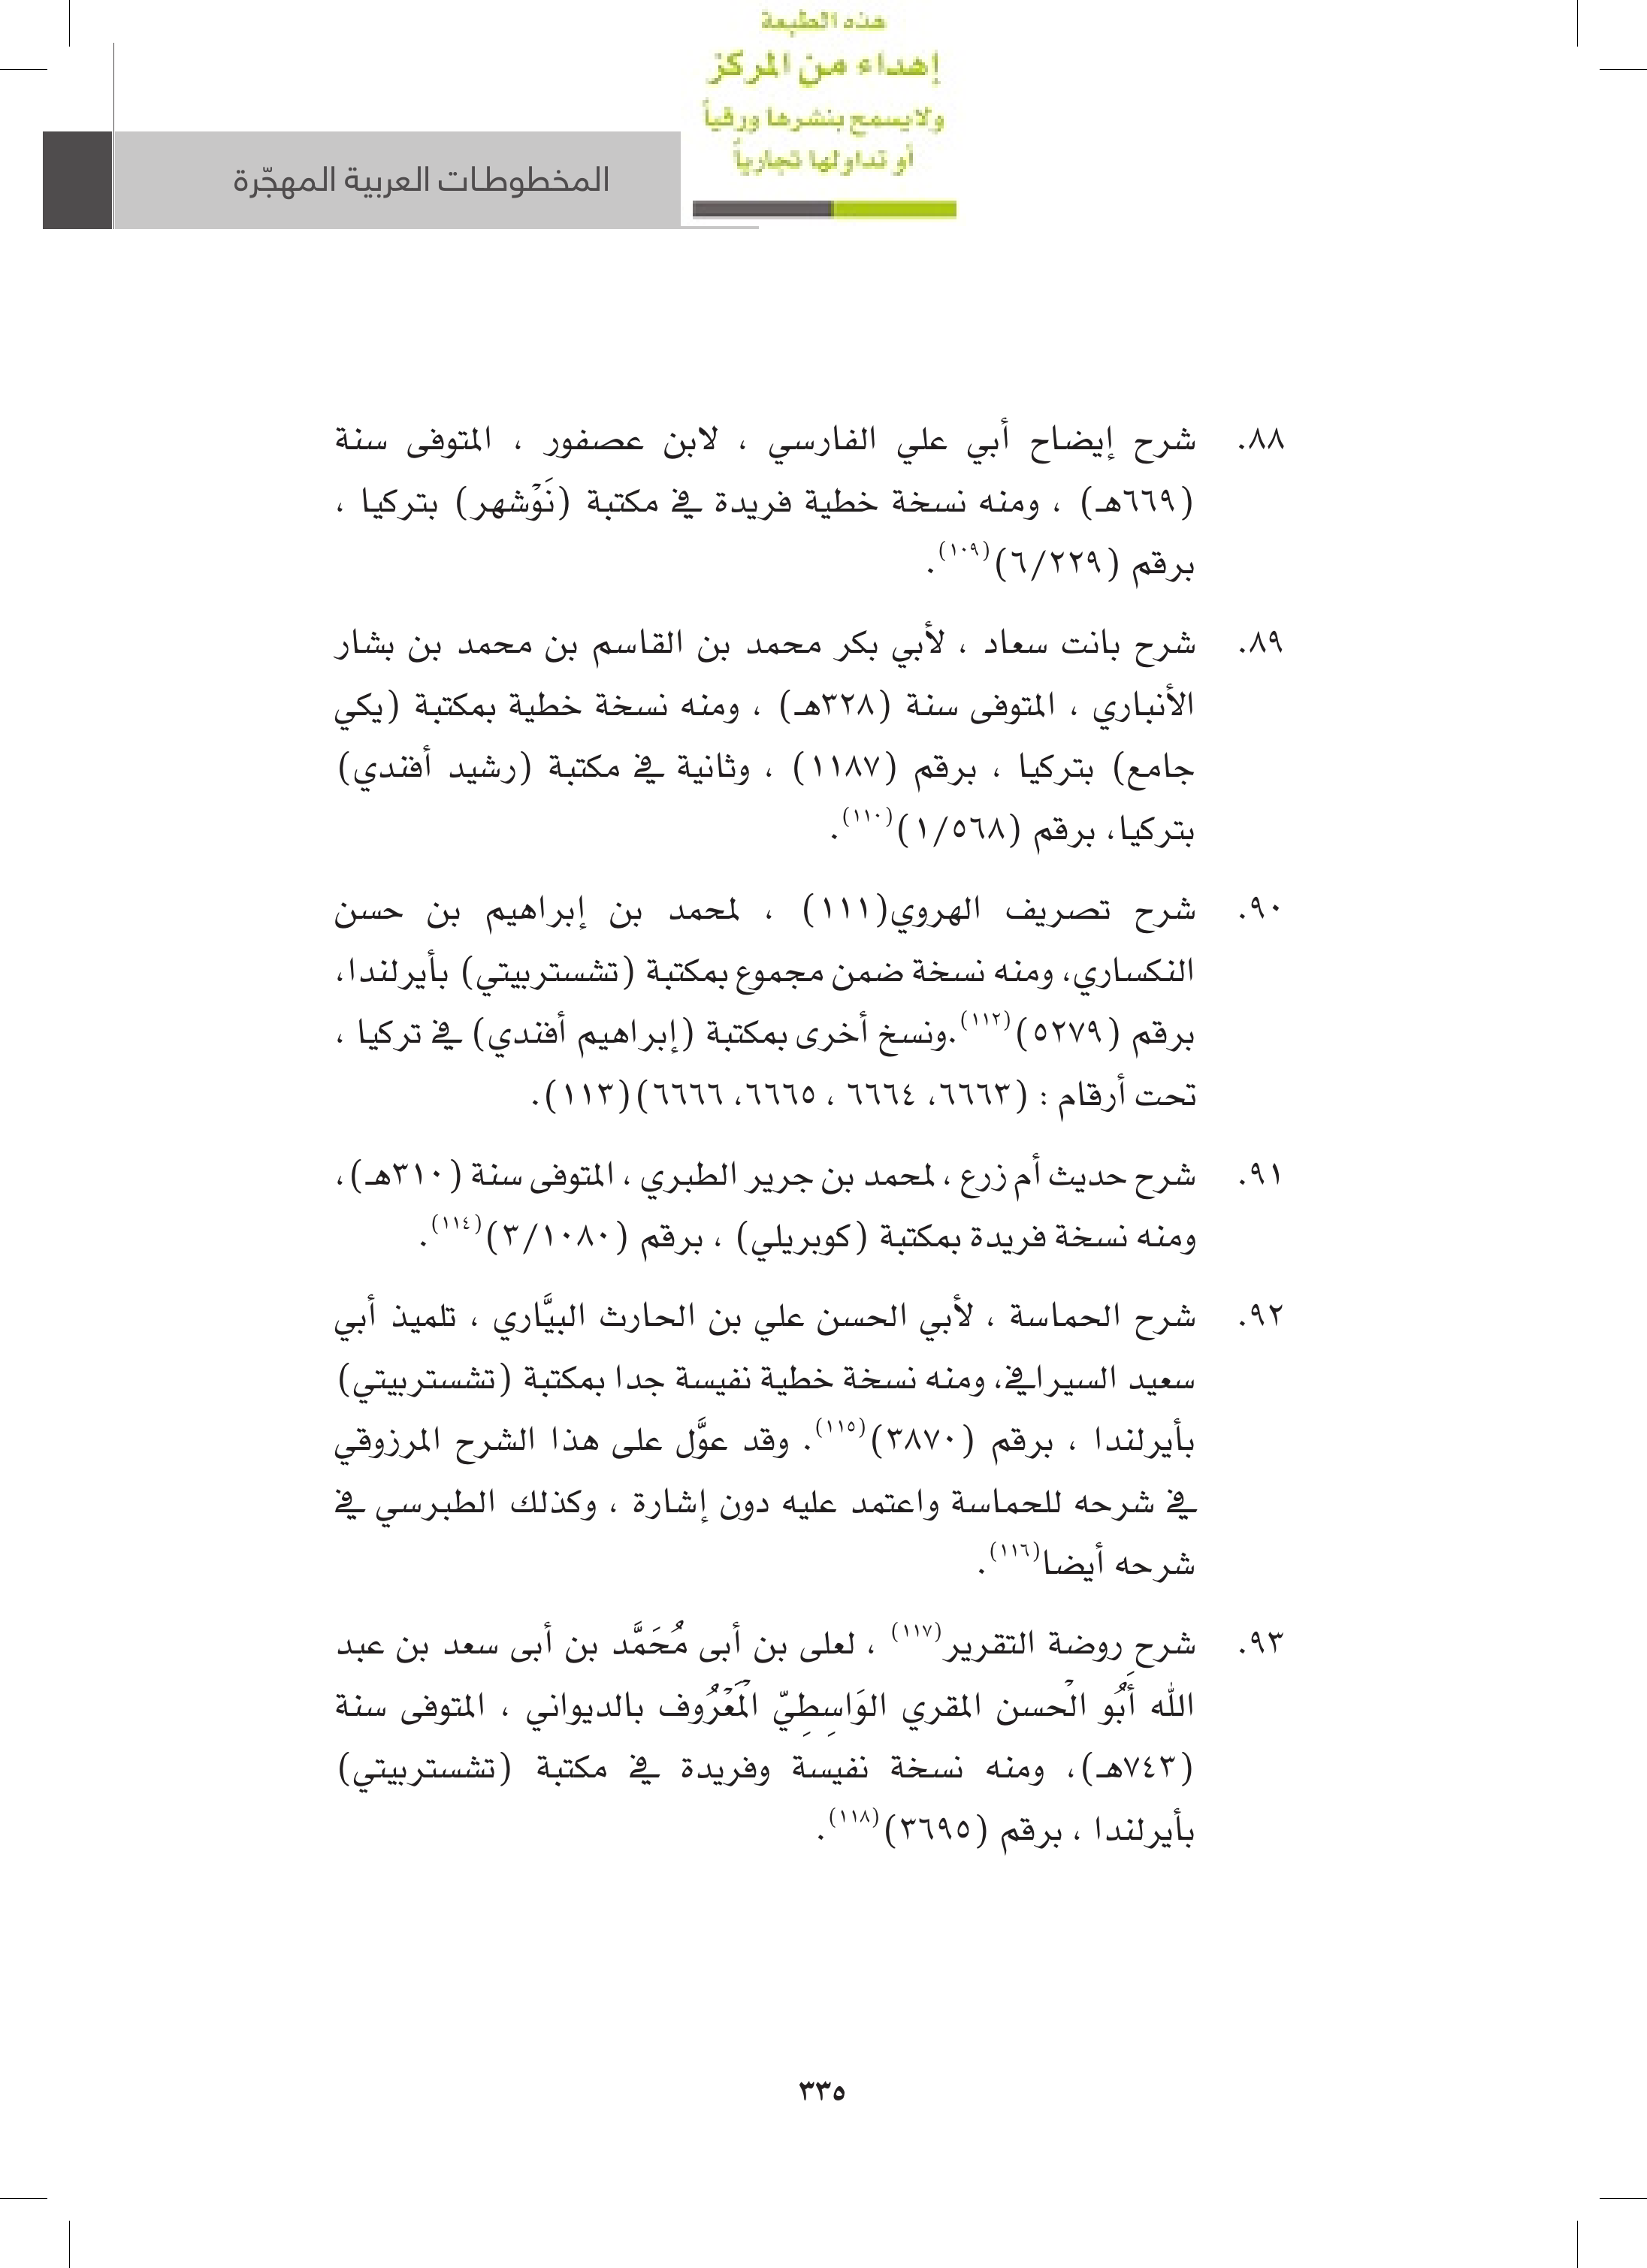 هذه الطبعة
إهداء من المركز
ولايسمح بنشرها ورقياً
أو تداولها تجارياً
المخطوطات العربية المهجّرة
٨٨. شرح إيضاح أبي علي الفارسي ، لابن عصفور ، المتوفى سنة
(٦٦٩هـ) ، ومنه نسخة خطية فريدة في مكتبة (نَوْشهر) بتركيا ،
برقم (٦/٢٢٩)(١٠٩).
٨٩. شرح بانت سعاد ، لأبي بكر محمد بن القاسم بن محمد بن بشار
الأنباري ، المتوفى سنة (٣٢٨هـ) ، ومنه نسخة خطية بمكتبة (يكي
جامع) بتركيا ، برقم (١١٨٧) ، وثانية في مكتبة (رشيد أفندي)
بتركيا، برقم (١/٥٦٨)(١١٠).
٩٠. شرح تصريف الهروي(١١١) ، لمحمد بن إبراهيم بن حسن
النكساري، ومنه نسخة ضمن مجموع بمكتبة (تشستربيتي) بأيرلندا،
برقم (٥٢٧٩)(١١٢).ونسخ أخرى بمكتبة (إبراهيم أفندي) في تركيا ،
تحت أرقام : (٦٦٦٣، ٦٦٦٤ ، ٦٦٦٥، ٦٦٦٦)(١١٣).
٩١. شرح حديث أم زرع ، لمحمد بن جرير الطبري ، المتوفى سنة (٣١٠هـ)،
ومنه نسخة فريدة بمكتبة (كوبريلي) ، برقم (٣/١٠٨٠)(١١٤).
٩٢. شرح الحماسة ، لأبي الحسن علي بن الحارث البيَّاري ، تلميذ أبي
سعيد السيرافي، ومنه نسخة خطية نفيسة جدا بمكتبة (تشستربيتي)
بأيرلندا ، برقم (٣٨٧٠)(١١٥). وقد عوَّل على هذا الشرح المرزوقي
في شرحه للحماسة واعتمد عليه دون إشارة ، وكذلك الطبرسي في
شرحه أيضا(١١٦).
٩٣. شرح روضة التقرير(١١٧) ، لعلى بن أبى مُحَمَّد بن أبى سعد بن عبد
الله أَبُو الْحسن المقري الوَاسِطِيّ الْمَعْرُوف بالديواني ، المتوفى سنة
(٧٤٣هـ)، ومنه نسخة نفيسة وفريدة في مكتبة (تشستربيتي)
بأيرلندا ، برقم (٣٦٩٥)(١١٨).
٣٣٥